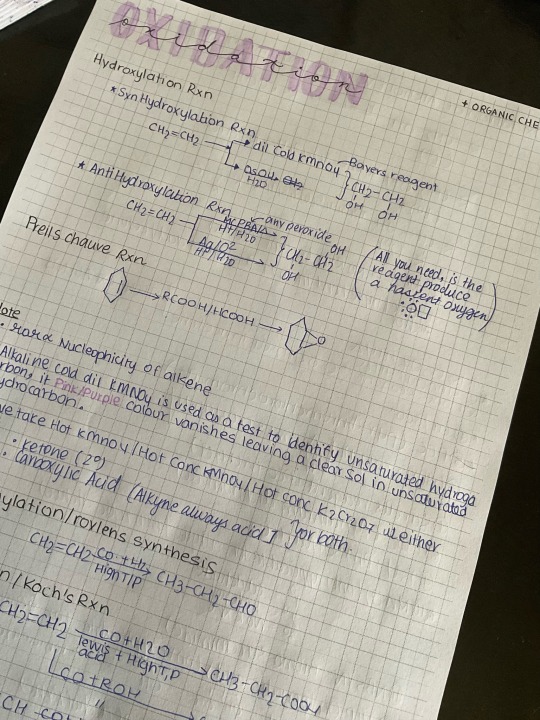 OXIDATION
oxidation
+ ORGANIC CHE
Hydroxylation Rxn
* Syn Hydroxylation Rxn
CH2=CH2
dil Cold kmno4
Bayers reagent
OsO4
H2O
CH2-CH2
OH OH
* Anti Hydroxylation Rxn
CH2=CH2
MCPBA/Δ
H+/H2O
any peroxide
Ag/O2
H+/H2O
CH2-CH2
OH
OH
(All you need, is the
reagent produce
a nascent oxygen)
Prells chauve Rxn
RCOOH/HCOOH
O
Note
: ror α Nucleophicity of alkene
Alkaline cold dil KMNO4 is used as a test to identify unsaturated hydroga
rbon, it Pink/Purple colour vanishes leaving a clear sol in unsaturated
ydhocarbon.
ve take Hot kmno4/Hot Conc KMNO4/Hot conc K2Cr2O7 either
: ketone (2°)
: Carboxylic Acid (Alkyne always acid) } for both.
ylation/roylens synthesis
CH2=CH2 CO+H2 CH3-CH2-CHO
High T/P
n/Koch's Rxn
CH2=CH2 CO+H2O CH3-CH2-COOH
lewis + High T,P
acid
CO+ROH